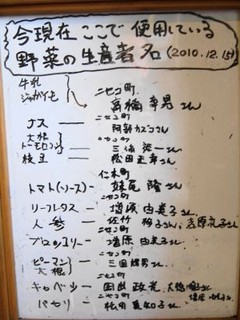 今現在ここで使用している
野菜の生産者名 (2010.12.15)
牛乳
ジャガイモ ニセコ町 高橋幸男さん
ナス ニセコ町 阿部カズコさん
大根
トーモロコシ ニセコ町 三浦 浩一さん
枝豆 ニセコ町 松田 さん
トマト(ソース) 仁木町 妹尾 隆さん
リーフレタス ニセコ町 増原由美子さん
人参 ニセコ町 佐竹 さん
ブロッコリー ニセコ町 増原 由美子さん
ピーマン
大根 ニセコ町 三田 男さん
キャベツ ニセコ町 さん
パセリ ニセコ町 さん